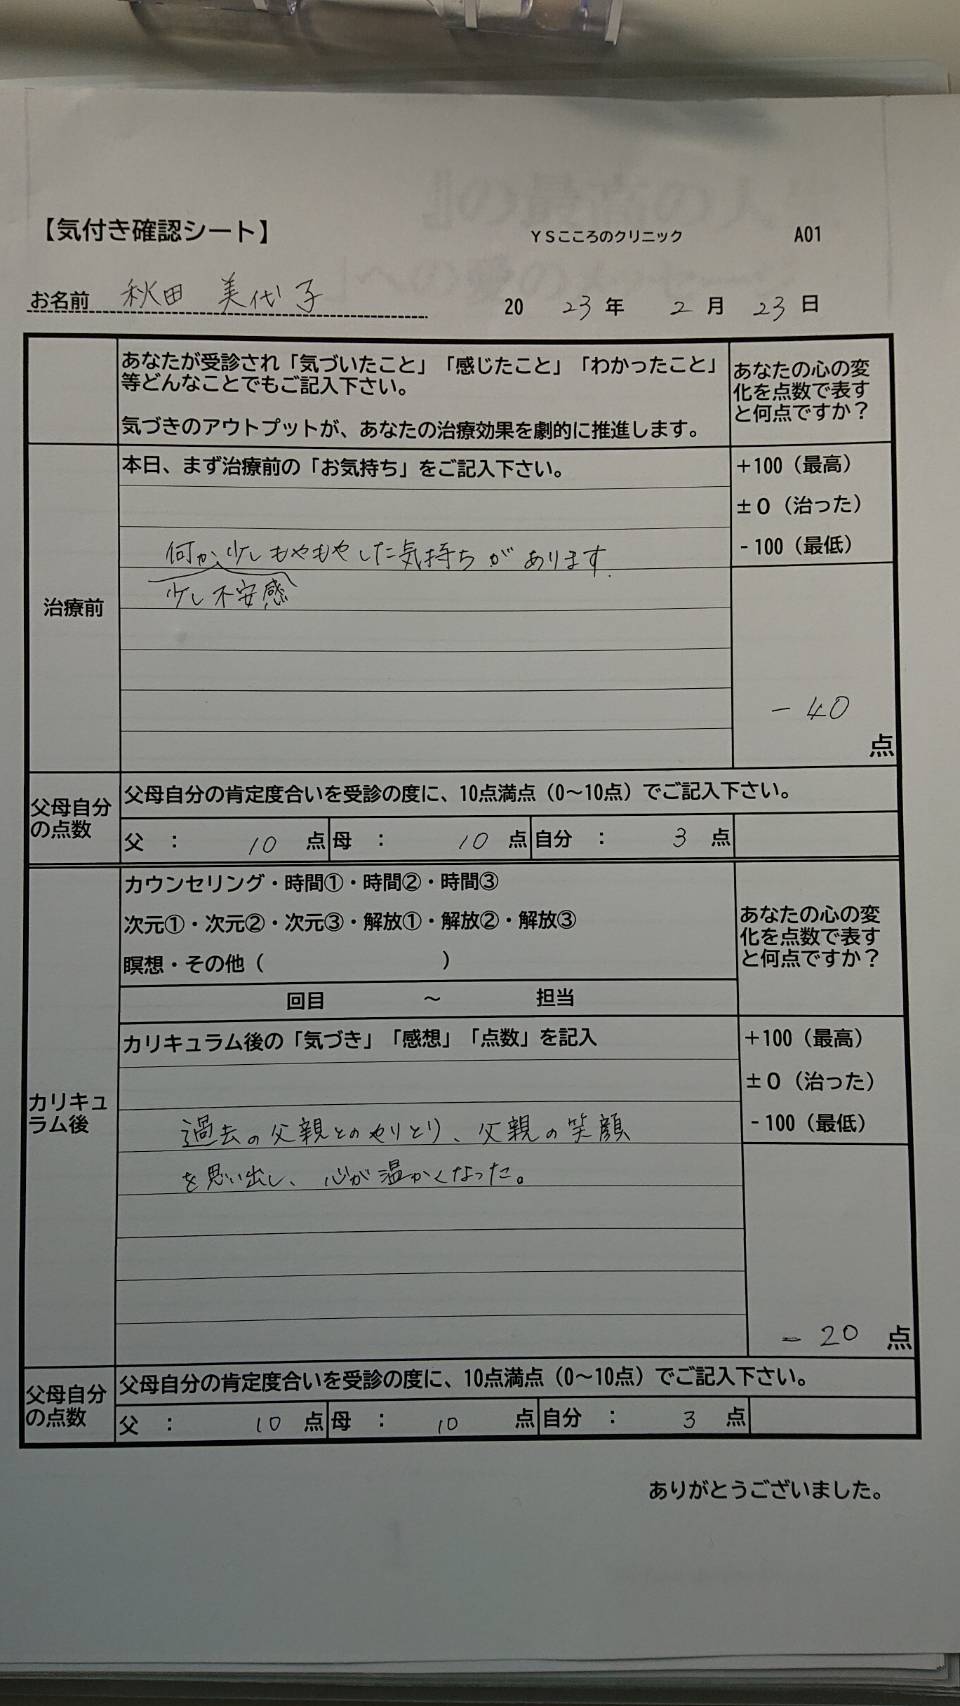 【気付き確認シート】 YSこころのクリニック A01
お名前 秋田 美代子 2023年 2月 23日
あなたが受診され「気づいたこと」「感じたこと」「わかったこと」
等どんなことでもご記入下さい。
気づきのアウトプットが、あなたの治療効果を劇的に推進します。
あなたの心の変
化を点数で表す
と何点ですか？
治療前
本日、まず治療前の「お気持ち」をご記入下さい。
何か、少しもやもやした気持ちがあります.
少し不安感
+100（最高）
±0（治った）
-100（最低）
-40
点
父母自分
の点数
父母自分の肯定度合いを受診の度に、10点満点（0～10点）でご記入下さい。
父 ： 10 点 母 ： 10 点 自分 ： 3 点
カリキュ
ラム後
カウンセリング・時間①・時間②・時間③
次元①・次元②・次元③・解放①・解放②・解放③
瞑想・その他（ ）
回目 ～ 担当
あなたの心の変
化を点数で表す
と何点ですか？
カリキュラム後の「気づき」「感想」「点数」を記入
過去の父親とのやりとり、父親の笑顔
を思い出し、心が温かくなった。
+100（最高）
±0（治った）
-100（最低）
-20 点
父母自分
の点数
父母自分の肯定度合いを受診の度に、10点満点（0～10点）でご記入下さい。
父 ： 10 点 母 ： 10 点 自分 ： 3 点
ありがとうございました。